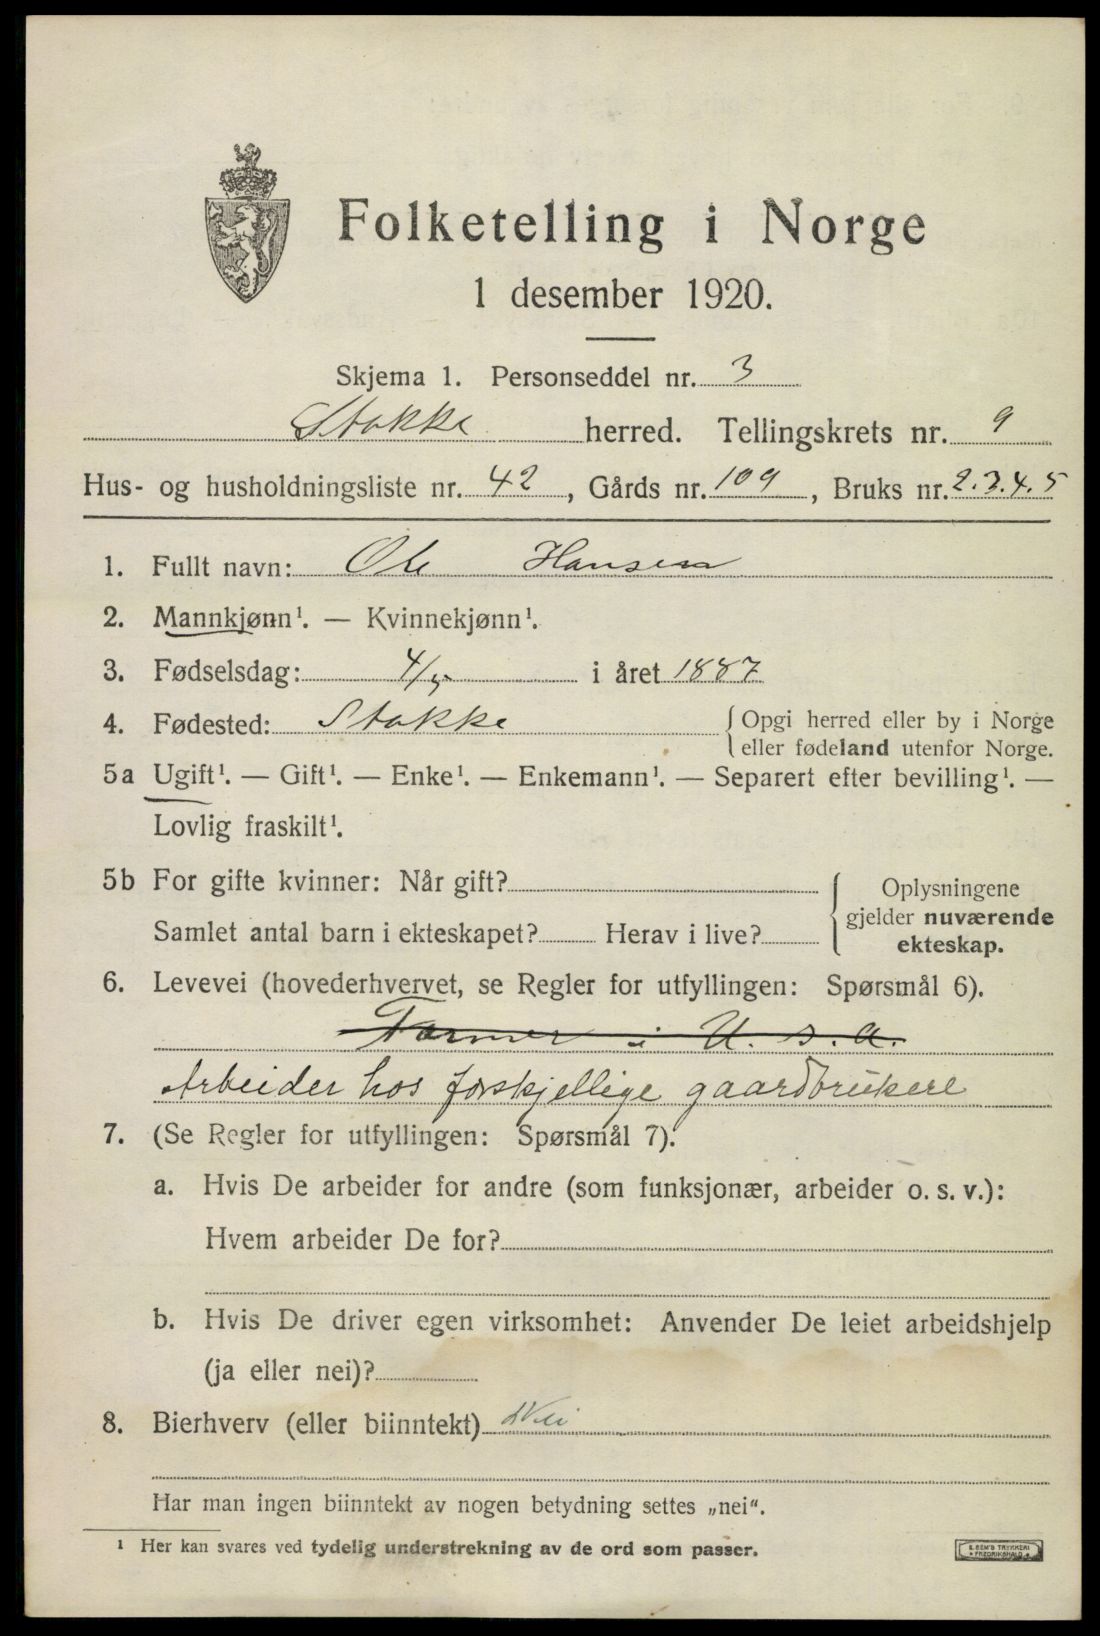 Folketelling i Norge
1 desember 1920.
Skjema 1. Personseddel nr. 3
Stokke herred. Tellingskrets nr. 9
Hus- og husholdningsliste nr. 42, Gårds nr. 109, Bruks nr. 2.3.4.5
1. Fullt navn: Ole Hansen
2. Mannkjønn¹. — Kvinnekjønn¹.
3. Fødselsdag: 4/5 i året 1887
4. Fødested: Stokke {Opgi herred eller by i Norge
eller fødeland utenfor Norge.
5a Ugift¹. — Gift¹. — Enke¹. — Enkemann¹. — Separert efter bevilling¹. —
Lovlig fraskilt¹.
5b For gifte kvinner: Når gift?
Samlet antal barn i ekteskapet? Herav i live?
{Oplysningene
gjelder nuværende
ekteskap.
6. Levevei (hovederhvervet, se Regler for utfyllingen: Spørsmål 6).
Farmer i U. S. A.
Arbeider hos forskjellige gaardbrukere
7. (Se Regler for utfyllingen: Spørsmål 7).
a. Hvis De arbeider for andre (som funksjonær, arbeider o. s. v.):
Hvem arbeider De for?
b. Hvis De driver egen virksomhet: Anvender De leiet arbeidshjelp
(ja eller nei)?
8. Bierhverv (eller biinntekt) Nei
Har man ingen biinntekt av nogen betydning settes „nei".
¹ Her kan svares ved tydelig understrekning av de ord som passer.
E. SEM'S TRYKKERI
FREDRIKSHALD